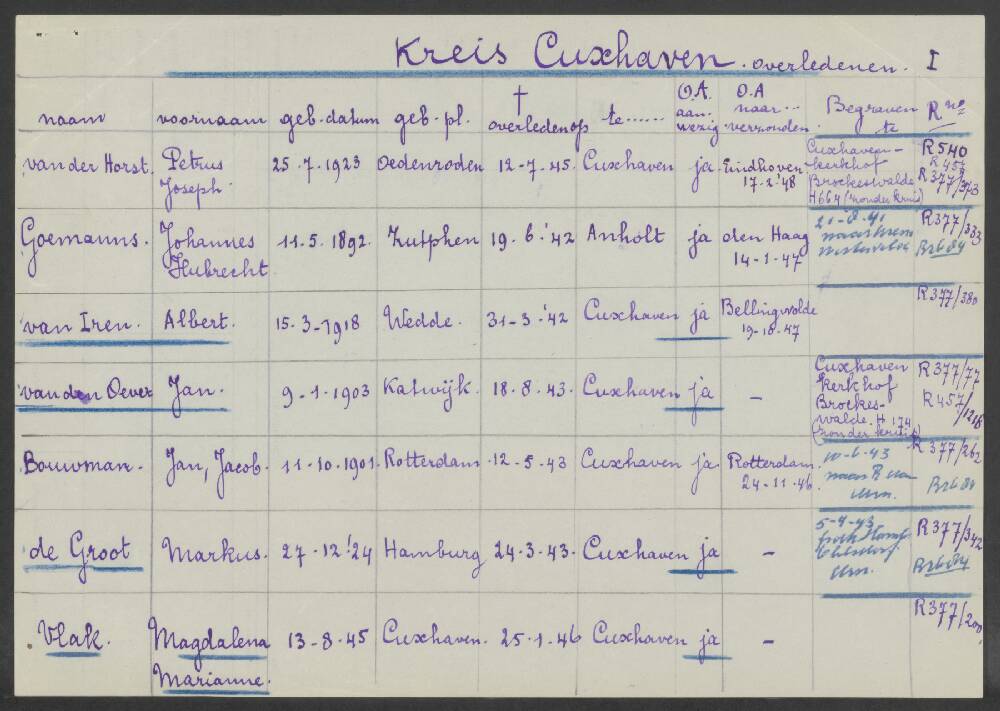 Kreis Cuxhaven. overledenen. I
naam voornaam geb. datum geb. pl. † overleden op te...... O.A. aan- wezig O.A naar... verzonden. Begraven te R no
van der Horst. Petrus Joseph. 25.7.1923 Oedenroden 12-7-45. Cuxhaven ja. Eindhoven 17-2-'48 Cuxhaven- kerkhof Brockeswalde H664 (zonder kruis) R540 R457 R377/373
Goemanns. Johannes Hubrecht 11.5.1892. Zutphen 19.6.'42 Anholt ja den Haag 14-1-47 21-8-41 naar R377/333 Br6.84
van Iren. Albert. 15.3-1918 Wedde. 31-3-'42 Cuxhaven ja Bellingwolde 19-10-47 R377/380
van den Oever Jan. 9-1-1903 Katwijk. 18.8.43. Cuxhaven ja - Cuxhaven kerkhof Brockes- walde. H 174 (zonder kruis) R377/77 R457/1218
Bouwman. Jan, Jacob. 11-10.1901. Rotterdam 12-5-43 Cuxhaven ja Rotterdam. 24-11-46. 10-6-43 naar R377/262 Br6.84
de Groot Markus. 27-12'.24 Hamburg 24-3-43. Cuxhaven ja - 5-4-43 R377/342 Br6.84
Vlak. Magdalena Marianne. 13-8-45 Cuxhaven. 25-1-46 Cuxhaven ja - R377/200